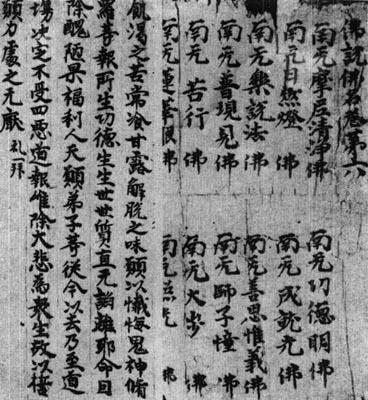 佛說佛名卷第十六
南无摩尼清淨佛 南无功德明佛
南无日燃燈佛 南无成就光佛
南无樂說法佛 南无善思惟義佛
南无普現見佛 南无師子憧佛
南无苦行佛 南无大步佛
南无蓮華眼佛 南无 佛
飢渴之苦常飡甘露解脫之味願以懺悔鬼神脩
羅等報所生功德生生世世質直无諂離耶命因
除醜陋果福利人天願弟子等從今以去乃至道
場決定不受四惡道報唯除大悲為衆生故以誓
願力處之无厭 礼一拜